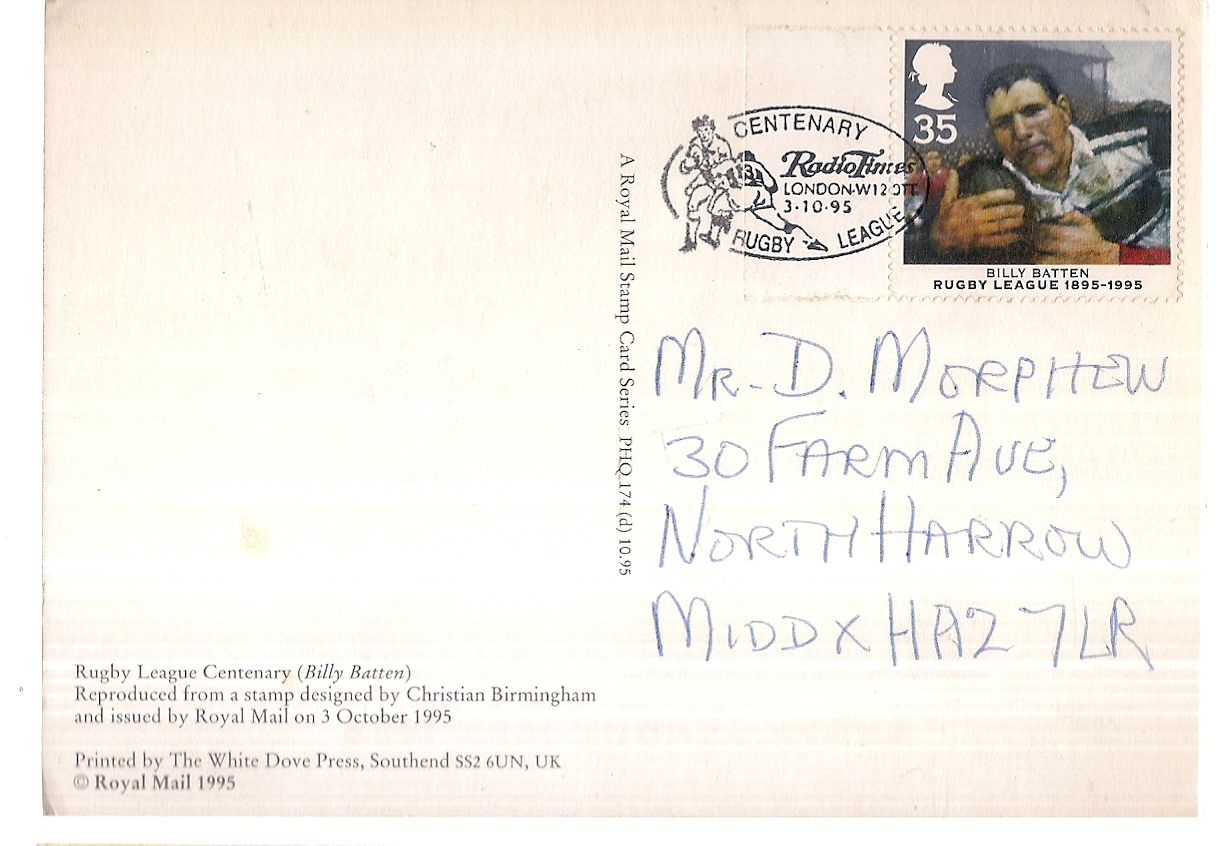 CENTENARY
Radio Times
LONDON·W12 0TT
3·10·95
RUGBY LEAGUE
35
BILLY BATTEN
RUGBY LEAGUE 1895-1995
A Royal Mail Stamp Card Series PHQ 174 (d) 10.95
MR. D. MORPHEW
30 FARM AVE,
NORTH HARROW
MIDDX HA2 7LR
Rugby League Centenary (Billy Batten)
Reproduced from a stamp designed by Christian Birmingham
and issued by Royal Mail on 3 October 1995
Printed by The White Dove Press, Southend SS2 6UN, UK
© Royal Mail 1995